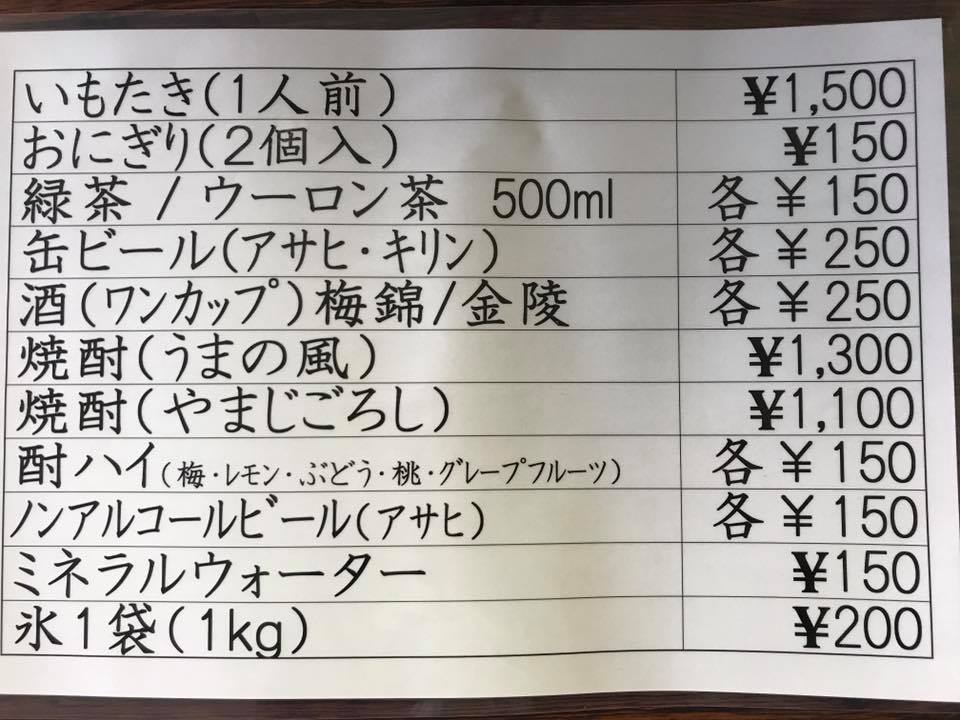 いもたき(1人前) ¥1,500
おにぎり(2個入) ¥150
緑茶 / ウーロン茶 500ml 各¥150
缶ビール(アサヒ・キリン) 各¥250
酒(ワンカップ)梅錦/金陵 各¥250
焼酎(うまの風) ¥1,300
焼酎(やまじごろし) ¥1,100
酎ハイ(梅・レモン・ぶどう・桃・グレープフルーツ) 各¥150
ノンアルコールビール(アサヒ) 各¥150
ミネラルウォーター ¥150
氷1袋(1kg) ¥200